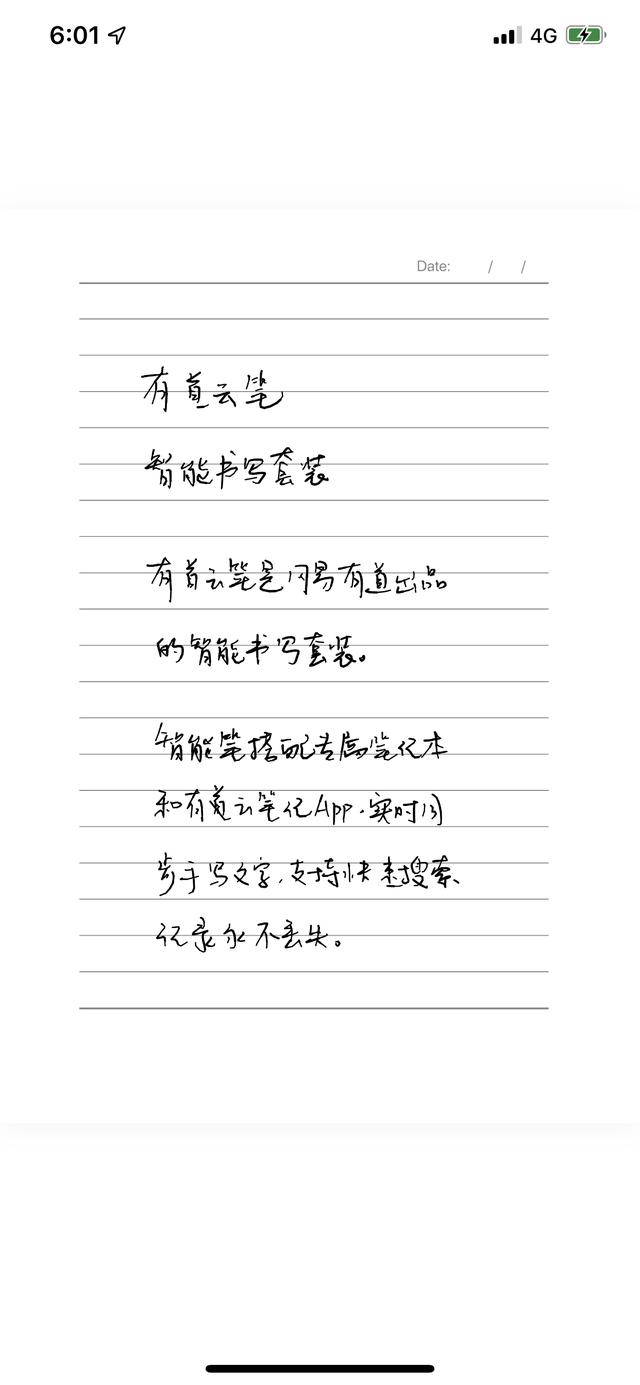 6:01
4G
Date: / /
有道云笔
智能书写套装
有道云笔是网易有道出品
的智能书写套装。
智能笔搭配专属笔记本
和有道云笔记App,实时同
步手写文字,支持快速搜索、
记录永不丢失。